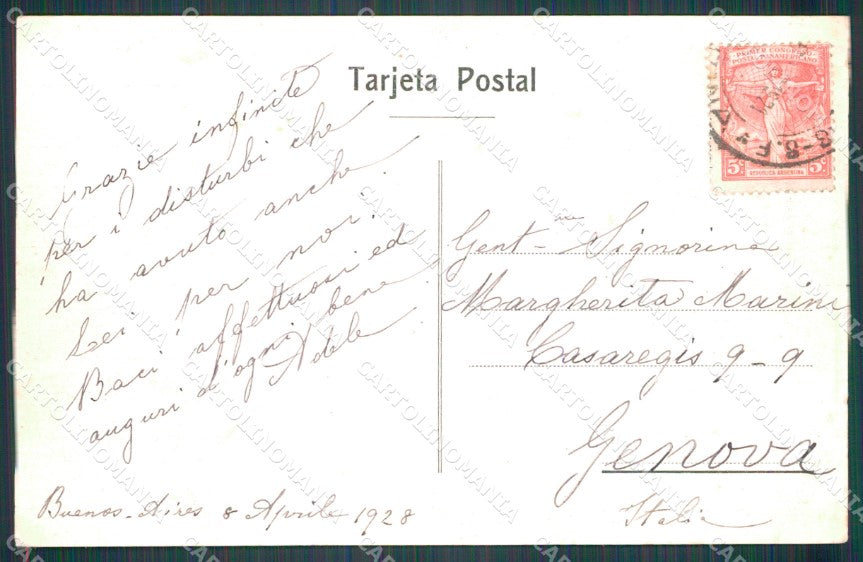 Tarjeta Postal
Grazie infinite
per i disturbi che
ha avuto anche
Lei per noi.
Baci affettuosi ed
auguri d'ogni bene
Adele
Buenos-Aires 8 Aprile 1928
PRIMER CONGRESO
POSTAL PANAMERICANO
5c 5c
REPUBLICA ARGENTINA
Gent-ma Signorina
Margherita Marini
Casaregis 9-9
Genova
Italia
CARTOLINOMANIA